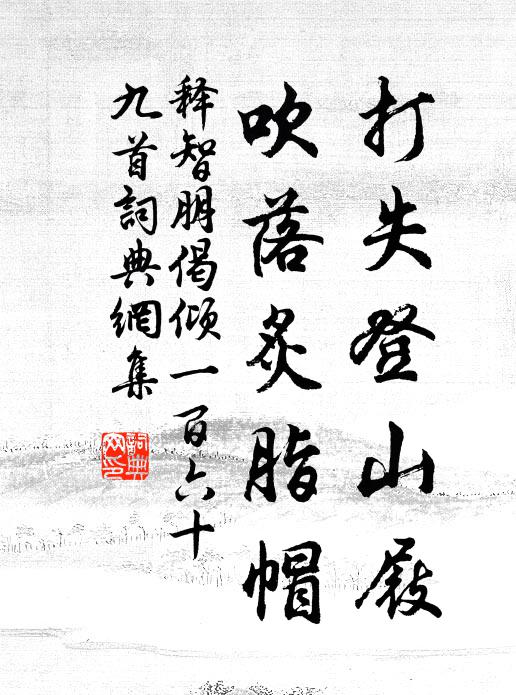 打失登山屐
吹落炙脂帽
释智朋偈倾一百六十
九首詞典網集
詞典
网印